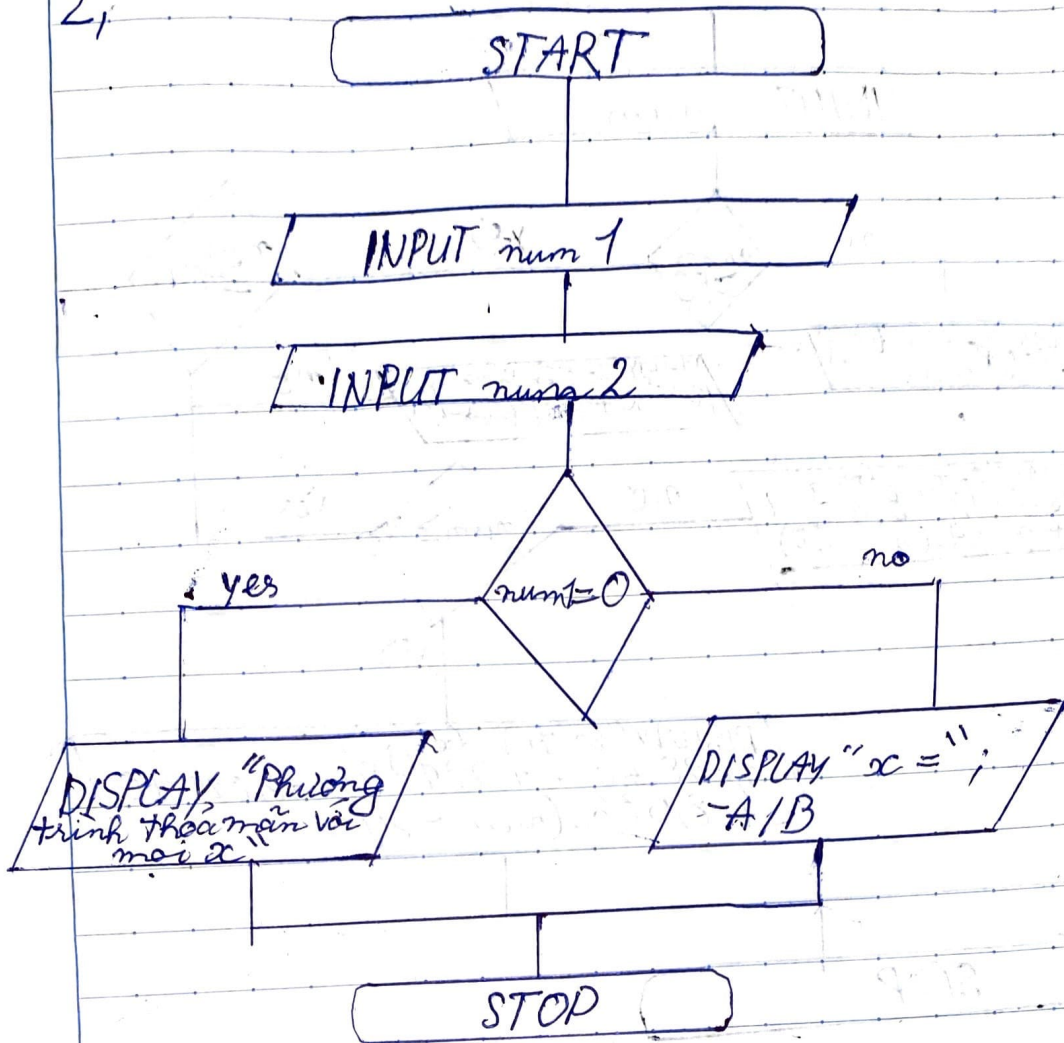 2,
START
INPUT num 1
INPUT num 2
yes
num1=0
no
DISPLAY "Phương
trình thoả mãn với
mọi x"
DISPLAY "x =";
-A/B
STOP